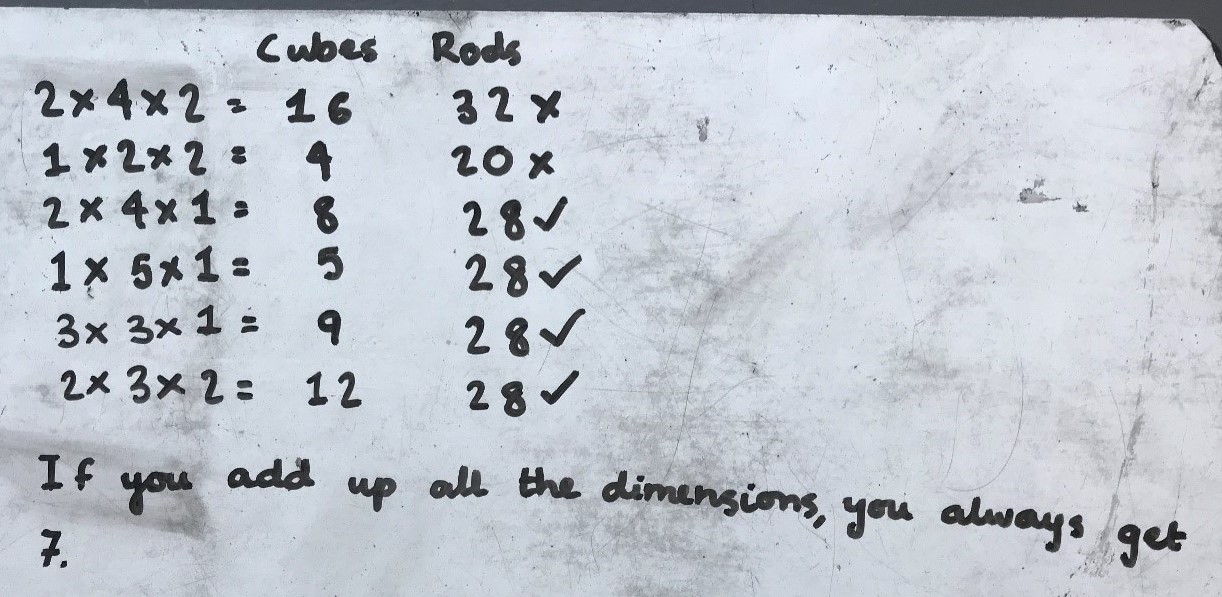 Cubes Rods
2×4×2 = 16 32 ×
1×2×2 = 4 20 ×
2×4×1 = 8 28 ✓
1×5×1 = 5 28 ✓
3×3×1 = 9 28 ✓
2×3×2 = 12 28 ✓
If you add up all the dimensions, you always get
7.